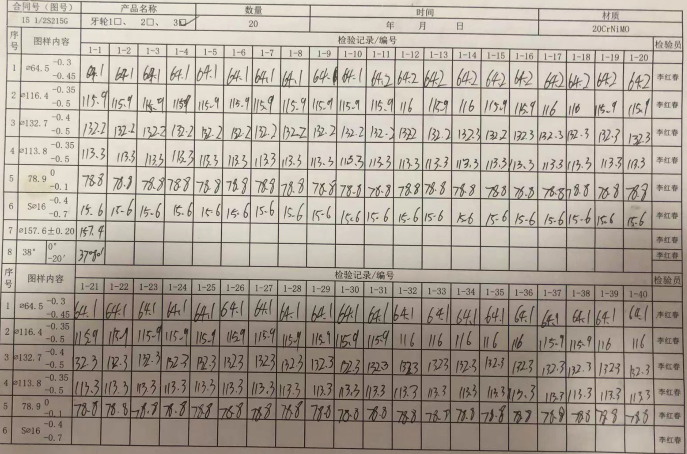 合同号(图号) 产品名称 数量 时间 材质
15 1/2S215G 牙轮1□、 2□、 3□ 20 年 月 日 20CrNiMO
序号 图样内容 检验记录/编号 检验员
1-1 1-2 1-3 1-4 1-5 1-6 1-7 1-8 1-9 1-10 1-11 1-12 1-13 1-14 1-15 1-16 1-17 1-18 1-19 1-20
1 ⌀64.5 -0.3 -0.45 64.1 64.1 64.1 64.1 64.1 64.1 64.1 64.1 64.1 64.2 64.2 64.2 64.2 64.2 64.2 64.2 64.2 64.2 64.2 李红春
2 ⌀116.4 -0.35 -0.5 115.9 115.9 115.9 115.9 115.9 115.9 115.9 115.9 115.9 115.9 115.9 116 115.9 116 115.9 115.9 116 116 115.9 115.9 李红春
3 ⌀132.7 -0.4 -0.5 132.2 132.2 132.2 132.2 132.2 132.2 132.2 132.2 132.2 132.2 132.2 132.2 132.2 132.3 132.2 132.3 132.3 132.3 132.3 132.3 李红春
4 ⌀113.8 -0.35 -0.5 113.3 113.3 113.3 113.3 113.3 113.3 113.3 113.3 113.3 113.3 113.3 113.3 113.3 113.3 113.3 113.3 113.3 113.3 113.3 113.3 李红春
5 78.9 0 -0.1 78.8 78.8 78.8 78.8 78.8 78.8 78.8 78.8 78.8 78.8 78.8 78.8 78.8 78.8 78.8 78.8 78.8 78.8 78.8 78.8 李红春
6 S⌀16 -0.4 -0.7 15.6 15.6 15.6 15.6 15.6 15.6 15.6 15.6 15.6 15.6 15.6 15.6 15.6 15.6 15.6 15.6 15.6 15.6 15.6 15.6 李红春
7 ⌀157.6±0.20 157.4 李红春
8 38° 0° -20′ 李红春
序号 图样内容 检验记录/编号 检验员
1-21 1-22 1-23 1-24 1-25 1-26 1-27 1-28 1-29 1-30 1-31 1-32 1-33 1-34 1-35 1-36 1-37 1-38 1-39 1-40
1 ⌀64.5 -0.3 -0.45 64.1 64.1 64.1 64.1 64.1 64.1 64.1 64.1 64.1 64.1 64.1 64.1 64.1 64.1 64.1 64.1 64.1 64.1 64.1 64.1 李红春
2 ⌀116.4 -0.35 -0.5 115.9 115.9 115.9 115.9 115.9 115.9 115.9 115.9 115.9 115.9 115.9 116 116 116 116 116 115.9 115.9 116 116 李红春
3 ⌀132.7 -0.4 -0.5 132.3 132.3 132.3 132.3 132.3 132.3 132.3 132.3 132.3 132.3 132.3 132.3 132.3 132.3 132.3 132.3 132.3 132.3 132.3 132.3 李红春
4 ⌀113.8 -0.35 -0.5 113.3 113.3 113.3 113.3 113.3 113.3 113.3 113.3 113.3 113.3 113.3 113.3 113.3 113.3 113.3 113.3 113.3 113.3 113.3 113.3 李红春
5 78.9 0 -0.1 78.8 78.8 78.8 78.8 78.8 78.8 78.8 78.8 78.8 78.8 78.8 78.8 78.8 78.8 78.8 78.8 78.8 78.8 78.8 78.8 李红春
6 S⌀16 -0.4 -0.7 李红春